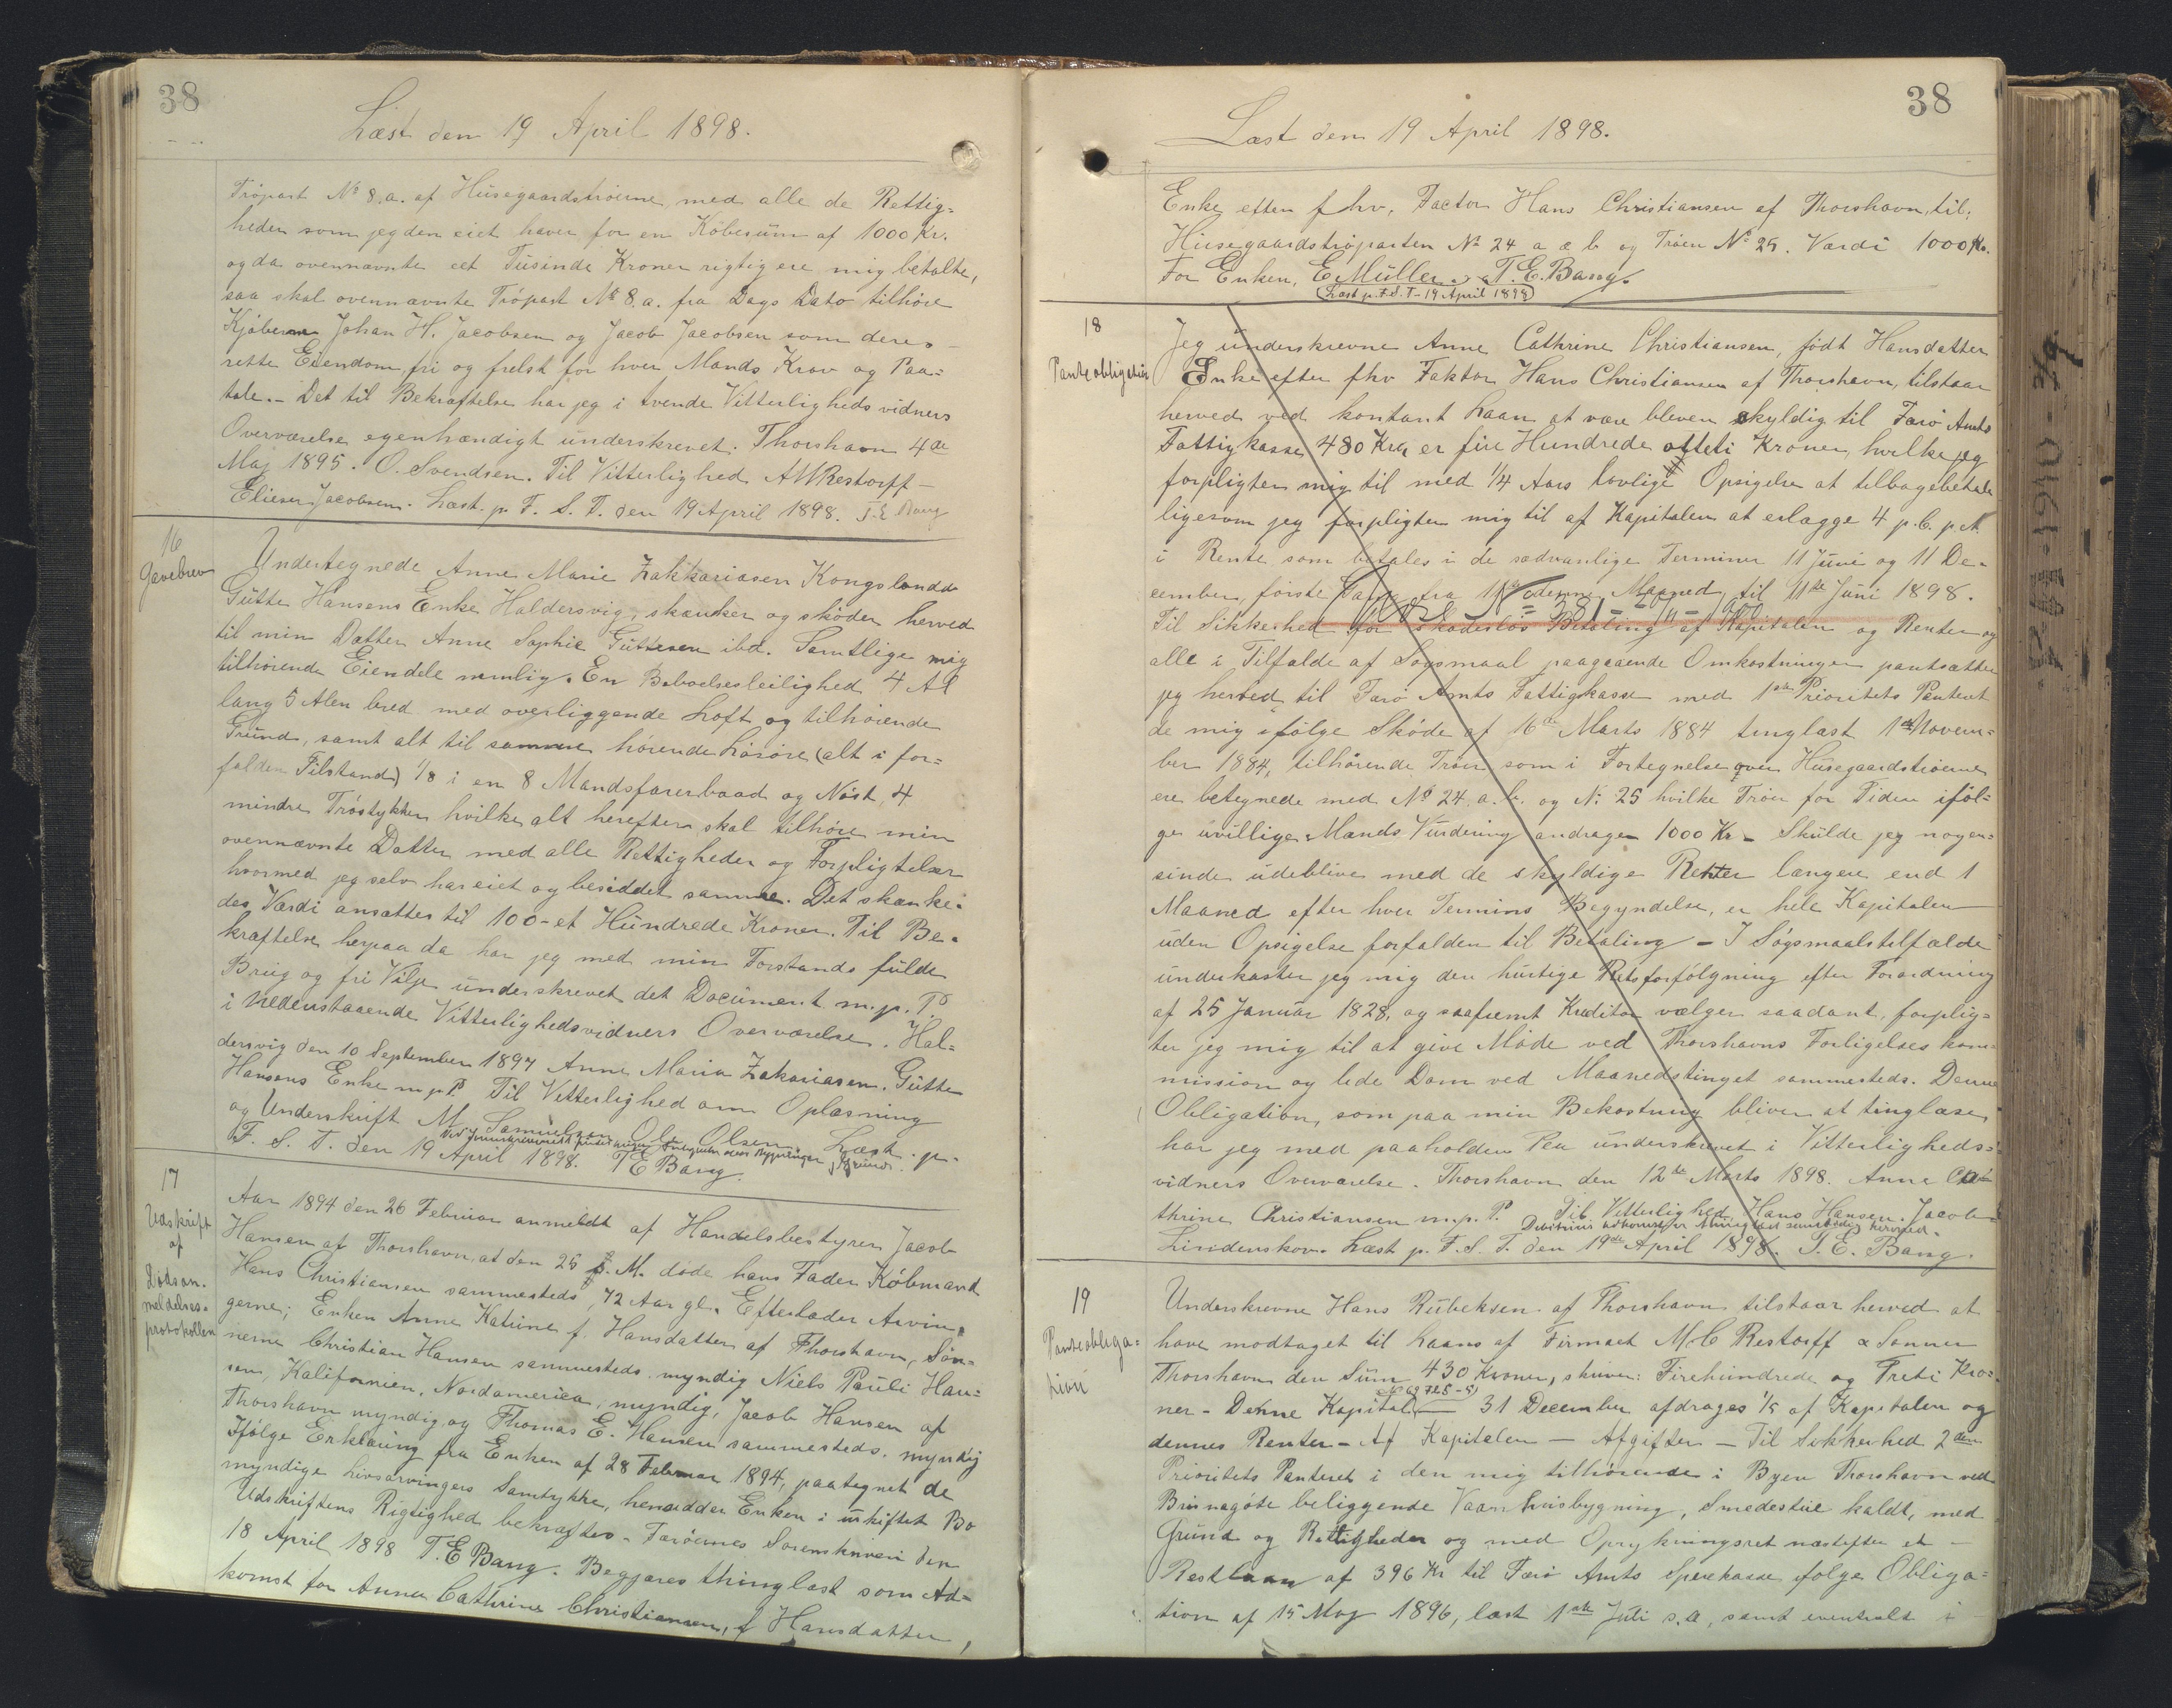 38
Læst den 19 April 1898.
Tröpart No 8.a. af Húsegaardströerne, med alle de Rettig=
heder som jeg den eiet haver for en Köbesúm af 1000 Kr.
og da ovennævnte eet Túsinde Kroner rigtig ere mig betalte,
saa skal ovennævnte Tröpart No 8.a. fra Dags Dato tilhöre
Kjöberne Johan H. Jacobsen og Jacob Jacobsen som deres
rette Eiendom, fri og frelst for hver Mands Krav og Paa=
tale. - Det til Bekræftelse har jeg i tvende Vitterligheds vidners
Overværelse egenhændigt únderskrevet. Thorshavn 4de
Maj 1895. O. Svendsen. Til Vitterlighed A W Restorff -
Elieser Jacobsen. Læst p. F. S. T. den 19 April 1898. T. E Bang
16
Gavebrev
Undertegnede Anne Marie Zakkariasen Kongslands
Gútte Hansens Enke Haldersvig, skænker og sköder herved
til min Datter Anne Sophie Gúttesen ibd. Samtlige mig
tilhörende Eiendele nemlig. En Beboelsesleilighed 4 Al
lang 5 Alen bred med overliggende Loft og tilhörende
Grúnd, samt alt til samme hörende Lösöre (alt i for=
falden Tilstand) 1/8 i en 8 Mandsfarerbaad og Nöst, 4
mindre Tröstykker hvilke alt herefter skal tilhöre min
ovennævnte Datter med alle Rettigheder og Forpligtelser
hvormed jeg selv har eiet og besiddet samme. Det skænke=
des Værdi ansættes til 100 - et Húndrede Kroner. Til Be=
kræftelse herpaa da har jeg med min Forstands fúlde
Brúg og fri Vilje únderskrevet det Docúment m. p. P.
i Nedenstaaende Vitterlighedsvidners Overværelse. Hal=
dersvig den 10 September 1897 Anne Maria Zakariasen. Gútte
Hansens Enke m. p. P. Til Vitterlighed om Oplæsning
og Underskrift M. Samúelsen Ole Olsen. Læst. p.
F. S. T. den 19 April 1898. T E Bang.
17
Udskrift
af
Dödsan=
meldelses=
protokollen
Aar 1894 den 26 Febrúar anmeldt af Handelsbestyrer Jacob
Hansen af Thorshavn, at den 25 s. M. döde hans Fader Köbmand
Hans Christiansen sammesteds, 72 Aar gl. Efterlader Arvin=
gerne; Enken Anne Katrine f. Hansdatter af Thorshavn, Søn=
nerne Christian Hansen sammesteds, myndig Niels Paúli Han=
sen, Kalifornien, Nordamerica, myndig, Jacob Hansen af
Thorshavn myndig og Thomas E. Hansen sammesteds, myndig
Ifölge Erklæring fra Enken af 28 Febrúar 1894, paategnet de
myndige Livsarvingers Samtykke, hensidder Enken i úskiftet Bo
Udskriftens Rigtighed bekræftes - Færöernes Sorenskriveri den
18 April 1898 T. E Bang. Begjæres thinglæst som Ad=
komst for Anna Cathrine Christiansen, f Hansdatter,
38
Læst den 19 April 1898.
Enke efter f hv. Factor Hans Christiansen af Thorshavn, til:
Húsegaardströparten No 24 a & b og Tröen No 25. Værdi 1000 Kr.
For Enken, E Múller. T. E. Bang.
(Læst p. F. S. T - 19 April 1898)
18
Panteobligation
Jeg únderskrevne Anne Cathrine Christiansen, födt Hansdatter
Enke efter fhv Faktor Hans Christiansen af Thorshavn, tilstaar
herved ved kontant Laan at være bleven skyldig til Færö Amts
Fattigkasse, 480 Kr, er fire Húndrede otteti Kroner, hvilke jeg
forpligter mig til med 1/4 Aars lovlige Opsigelse at tilbagebetale
ligesom jeg forpligter mig til af Kapitalen at erlægge 4 p. C. p. A.
i Rente som betales i de sædvanlige Terminer 11 Júni og 11 De=
cember, förste Gang fra 11te denne Maaned til 11te Júni 1898.
Til Sikkerhed for skadeslös Betaling af Kapitalen og Renter og
alle i Tilfælde af Sögsmaal paagaaende Omkostninger pantsætter
jeg herved til Færö Amts Fattigkasse med 1ste Prioritets Panteret
de mig ifölge Sköde af 16de Marts 1884 tinglæst 1ste Novem=
ber 1884, tilhörende Tröer som i Fortegnelse over Húsegaardströerne
ere betegnede med No 24. a. b. og No 25 hvilke Tröer for Tiden iföl=
ge úvillige Mænds Vúrdering andrager 1000 Kr - Skúlde jeg nogen=
sinde údeblive med de skyldige Renter længere end 1
Maaned efter hver Termins Begyndelse, er hele Kapitalen
úden Opsigelse forfalden til Betaling - I Sögsmaalstilfælde
únderkaster jeg mig den húrtige Retsforfölgning efter Forordning
af 25 Janúar 1828, og saafremt Kreditor vælger saadant, forplig=
ter jeg mig til at give Möde ved Thorshavns Forligelses kom=
mission og lide Dom ved Maanedstinget sammesteds. Denne
Obligation, som paa min Bekostning bliver at tinglæse,
har jeg med paaholden Pen únderskrevet i Vitterligheds=
vidners Overværelse. Thorshavn den 12te Marts 1898. Anne Ca=
thrine Christiansen m. p. P. Til Vitterlighed Hans Hansen. Jacob
Lindenskov. Læst p. F. S. T. den 19de April 1898. T. E. Bang.
19
Panteobliga=
tion
Underskrevne Hans Rúbeksen af Thorshavn tilstaar herved at
have modtaget til Laans af Firmaet M C Restorff & Sönner
Thorshavn den Súm 430 Kroner, skriver: Firehúndrede og Treti Kro=
ner - Denne Kapital - 31 December afdrages 1/5 af Kapitalen og
dennes Renter - Af Kapitalen - Afgifter - Til Sikkerhed 2den
Prioritets Panteret i den mig tilhörende i Byen Thorshavn ved
Bringgöte beliggende Vaanhúsbygning, Smedestúe kaldt, med
Grúnd og Rettigheder og med Oprykningsret næstefter et -
Restlaan af 396 Kr til Færö Amts Sparekasse fölge Obliga=
tion af 15 Maj 1896, læst 1ste Júli s. a, samt eventúelt i